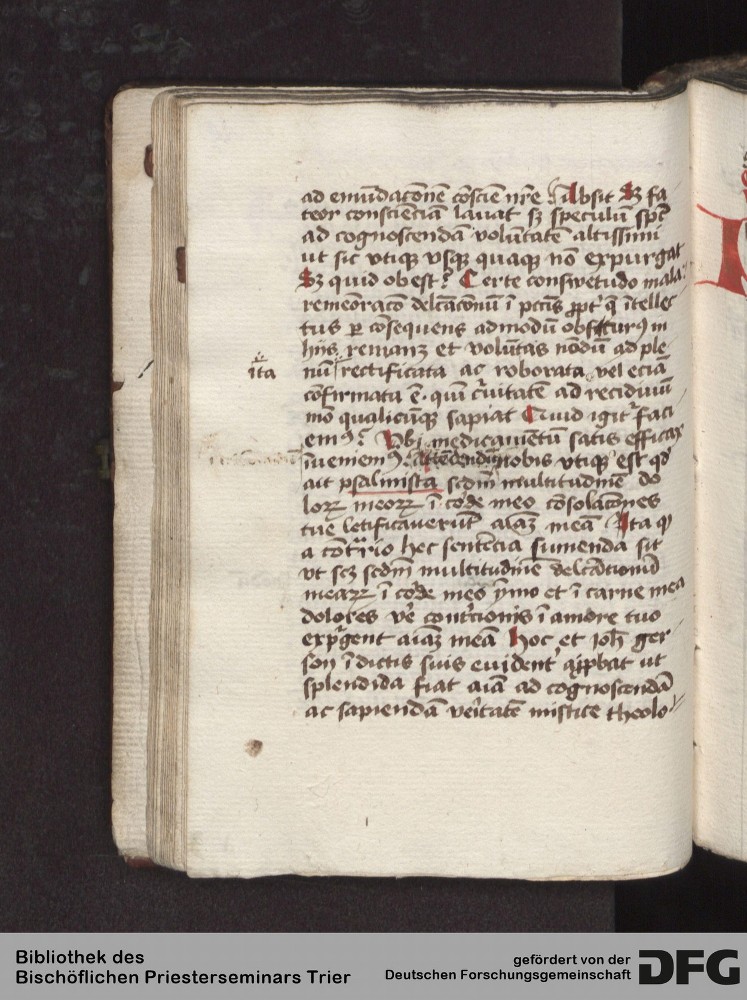 ad emūdacōnē cōsciē nr̄e ? Absit Sꝫ fa
teor consciēciā lauat sꝫ speculū
ad cognoscendā volūtatē altissimi
ut sic vtiqꝫ vsqꝫ quaqꝫ nō expurgat
Sꝫ quid obest? Certe conswetudo mala
remeōracō delcācōnū ī pctīs ꝓpt' q̄ ītellec
tus ꝑ cōsequens admodū obscturꝰ in
hiis remanꝫ et volūtas nōdū ad ple
īta
nū rectificata ac roborata vel eciā
cōfirmata ē ad recidiuū
mō qualicūqꝫ sapiat Quid igit' faci
emꝰ? Vbi medicamētū satis efficax
īueniemꝰ? Attēdendū nobis vtiqꝫ est qd'
ait psalmista scdm̄ multitudinē do
lorꝝ meorꝝ ī corde meo cōsolacōnes
tue letificauerūt aīaꝫ meā Ita qꝫ
a cōtrario hec sentēcia sumenda sit
vt scꝫ scdm̄ multitudinē delcātionū
mearꝝ ī corde meo ymo et ī carne mea
dolores ve' contricionis ī amore tuo
expurgent aīaꝫ meā Hoc et Ioh̄ ger
son ī dictis suis euident' apꝓbat ut
splendida fiat aīa ad cognoscendā
ac sapiendā veritatē mistice theolo
Bibliothek des
Bischöflichen Priesterseminars Trier
gefördert von der
Deutschen Forschungsgemeinschaft
DFG